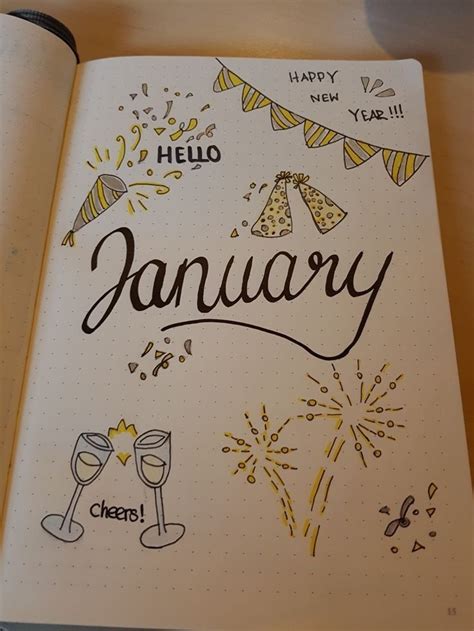 HAPPY
NEW
YEAR!!!
HELLO
January
cheers!